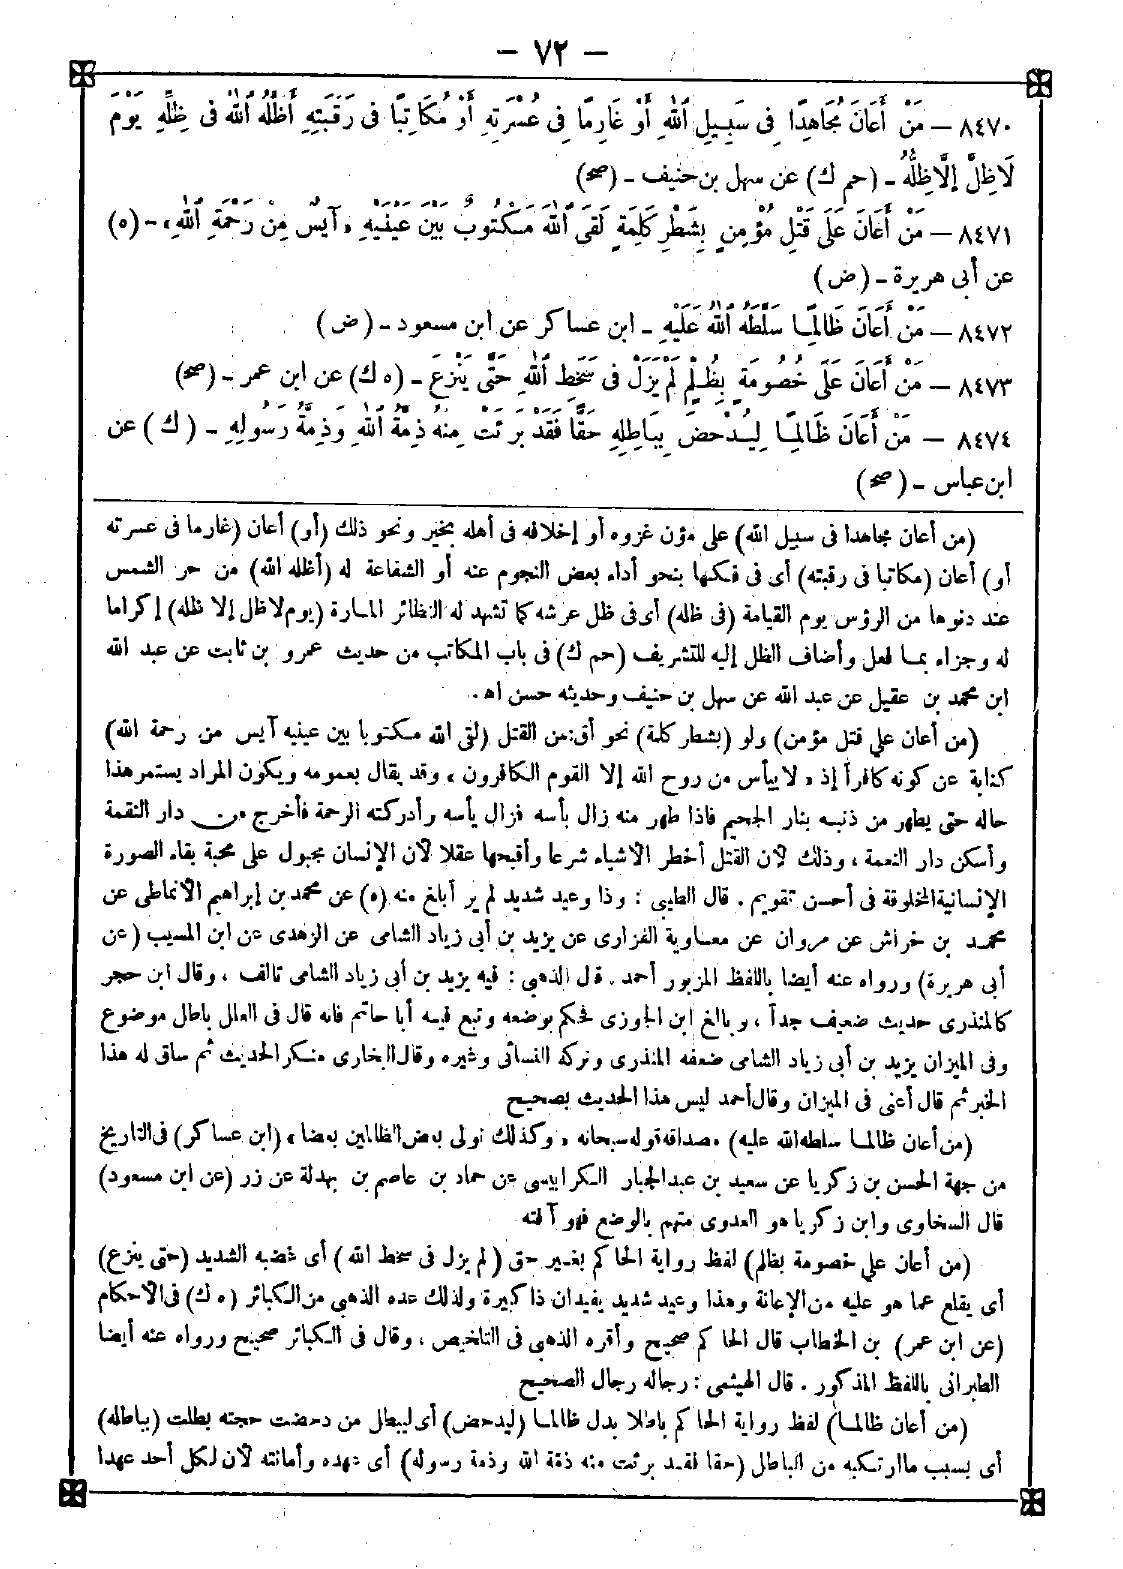 — ٧٢ —
٨٤٧٠ — مَنْ أَعَانَ مُجَاهِدًا فِى سَبِيلِ اللهِ أَوْ غَارِمًا فِى عُسْرَتِهِ أَوْ مُكَاتِبًا فِى رَقَبَتِهِ أَظَلَّهُ اللهُ فِى ظِلِّهِ يَوْمَ
لَاظِلَّ إِلَّاظِلُّهُ - (حم ك) عن سهل بن حنيف - (صح)
٨٤٧١ — مَنْ أَعَانَ عَلَى قَتْلِ مُؤْمِنٍ بِشَطْرِ كَلِمَةٍ لَقِىَ اللهَ مَكْتُوبٌ بَيْنَ عَيْنَيْهِ «آيِسٌ مِنْ رَحْمَةِ اللهِ» - (ه)
عن أبى هريرة - (ض)
٨٤٧٢ — مَنْ أَعَانَ ظَالِمًا سَلَّطَهُ اللهُ عَلَيْهِ - ابن عساكر عن ابن مسعود - (ض)
٨٤٧٣ — مَنْ أَعَانَ عَلَى خُصُومَةٍ بِظُلْمٍ لَمْ يَزَلْ فِى سَخَطِ اللهِ حَتَّى يَنْزِعَ - (ه ك) عن ابن عمر - (صح)
٨٤٧٤ — مَنْ أَعَانَ ظَالِمًا لِيُدْحِضَ بِبَاطِلِهِ حَقًّا فَقَدْ بَرِئَتْ مِنْهُ ذِمَّةُ اللهِ وَذِمَّةُ رَسُولِهِ - (ك) عن
ابن عباس - (صح)
(من أعان مجاهدا فى سبيل الله) على مؤن غزوه أو إخلافه فى أهله بخير ونحو ذلك (أو) أعان (غارما فى عسرته
أو) أعان (مكاتبا فى رقبته) أى فى فكها بنحو أداء بعض النجوم عنه أو الشفاعة له (أظله الله) من حر الشمس
عند دنوها من الرؤس يوم القيامة (فى ظله) أى فى ظل عرشه كما تشهد له النظائر المارة (يوم لاظل إلا ظله) إكراما
له وجزاء بما فعل وأضاف الظل إليه للتشريف (حم ك) فى باب المكاتب من حديث عمرو بن ثابت عن عبد الله
ابن محمد بن عقيل عن عبد الله عن سهل بن حنيف وحديثه حسن اه.
(من أعان على قتل مؤمن) ولو (بشطر كلمة) نحو أق: من القتل (لقى الله مكتوبا بين عينيه آيس من رحمة الله)
كناية عن كونه كافرا إذ «لاييأس من روح الله إلا القوم الكافرون» وقد يقال بعمومه ويكون المراد يستمر هذا
حاله حتى يطهر من ذنبه بنار الجحيم فاذا طهر منه زال بأسه فزال يأسه وأدركته الرحمة فأخرج من دار النقمة
وأسكن دار النعمة، وذلك لأن القتل أخطر الأشياء شرعا وأقبحها عقلا لأن الإنسان مجبول على محبة بقاء الصورة
الإنسانية المخلوقة فى أحسن تقويم. قال الطيبى: وذا وعيد شديد لم ير أبلغ منه (ه) عن محمد بن إبراهيم الأنماطى عن
محمد بن خراش عن مروان عن معاوية الفزارى عن يزيد بن أبى زياد الشامى عن الزهدى عن ابن المسيب (عن
أبى هريرة) ورواه عنه أيضا باللفظ المزبور أحمد. قال الذهبى: فيه يزيد بن أبى زياد الشامى تالف، وقال ابن حجر
كالمنذرى حديث ضعيف جداً، وبالغ ابن الجوزى فحكم بوضعه وتبع فيه أبا حاتم فانه قال فى العلل باطل موضوع
وفى الميزان يزيد بن أبى زياد الشامى ضعفه المنذرى وتركه النسائى وغيره وقال البخارى منكر الحديث ثم ساق له هذا
الخبر ثم قال أعنى فى الميزان وقال أحمد ليس هذا الحديث بصحيح
(من أعان ظالما سلطه الله عليه) مصداقه قوله سبحانه «وكذلك نولى بعض الظالمين بعضا» (ابن عساكر) فى التاريخ
من جهة الحسن بن زكريا عن سعيد بن عبد الجبار الكرابيسى عن حماد بن عاصم بن بهدلة عن زر (عن ابن مسعود)
قال السخاوى وابن زكريا هو العدوى متهم بالوضع فهو آفته
(من أعان على خصومة بظلم) لفظ رواية الحاكم بغير حق (لم يزل فى سخط الله) أى غضبه الشديد (حتى ينزع)
أى يقلع عما هو عليه من الإعانة وهذا وعيد شديد يفيد ان ذا كبيرة ولذلك عده الذهبى من الكبائر (ه ك) فى الأحكام
(عن ابن عمر) بن الخطاب قال الحاكم صحيح وأقره الذهبى فى التلخيص، وقال فى الكبائر صحيح ورواه عنه أيضا
الطبرانى باللفظ المذكور. قال الهيثمى: رجاله رجال الصحيح
(من أعان ظالما) لفظ رواية الحاكم باطلا بدل ظالما (ليدحض) أى ليبطل من دحضت حجته بطلت (بباطله)
أى بسبب ماارتكبه من الباطل (حقا فقد برئت منه ذمة الله وذمة رسوله) أى عهده وأمانته لأن لكل أحد عهدا